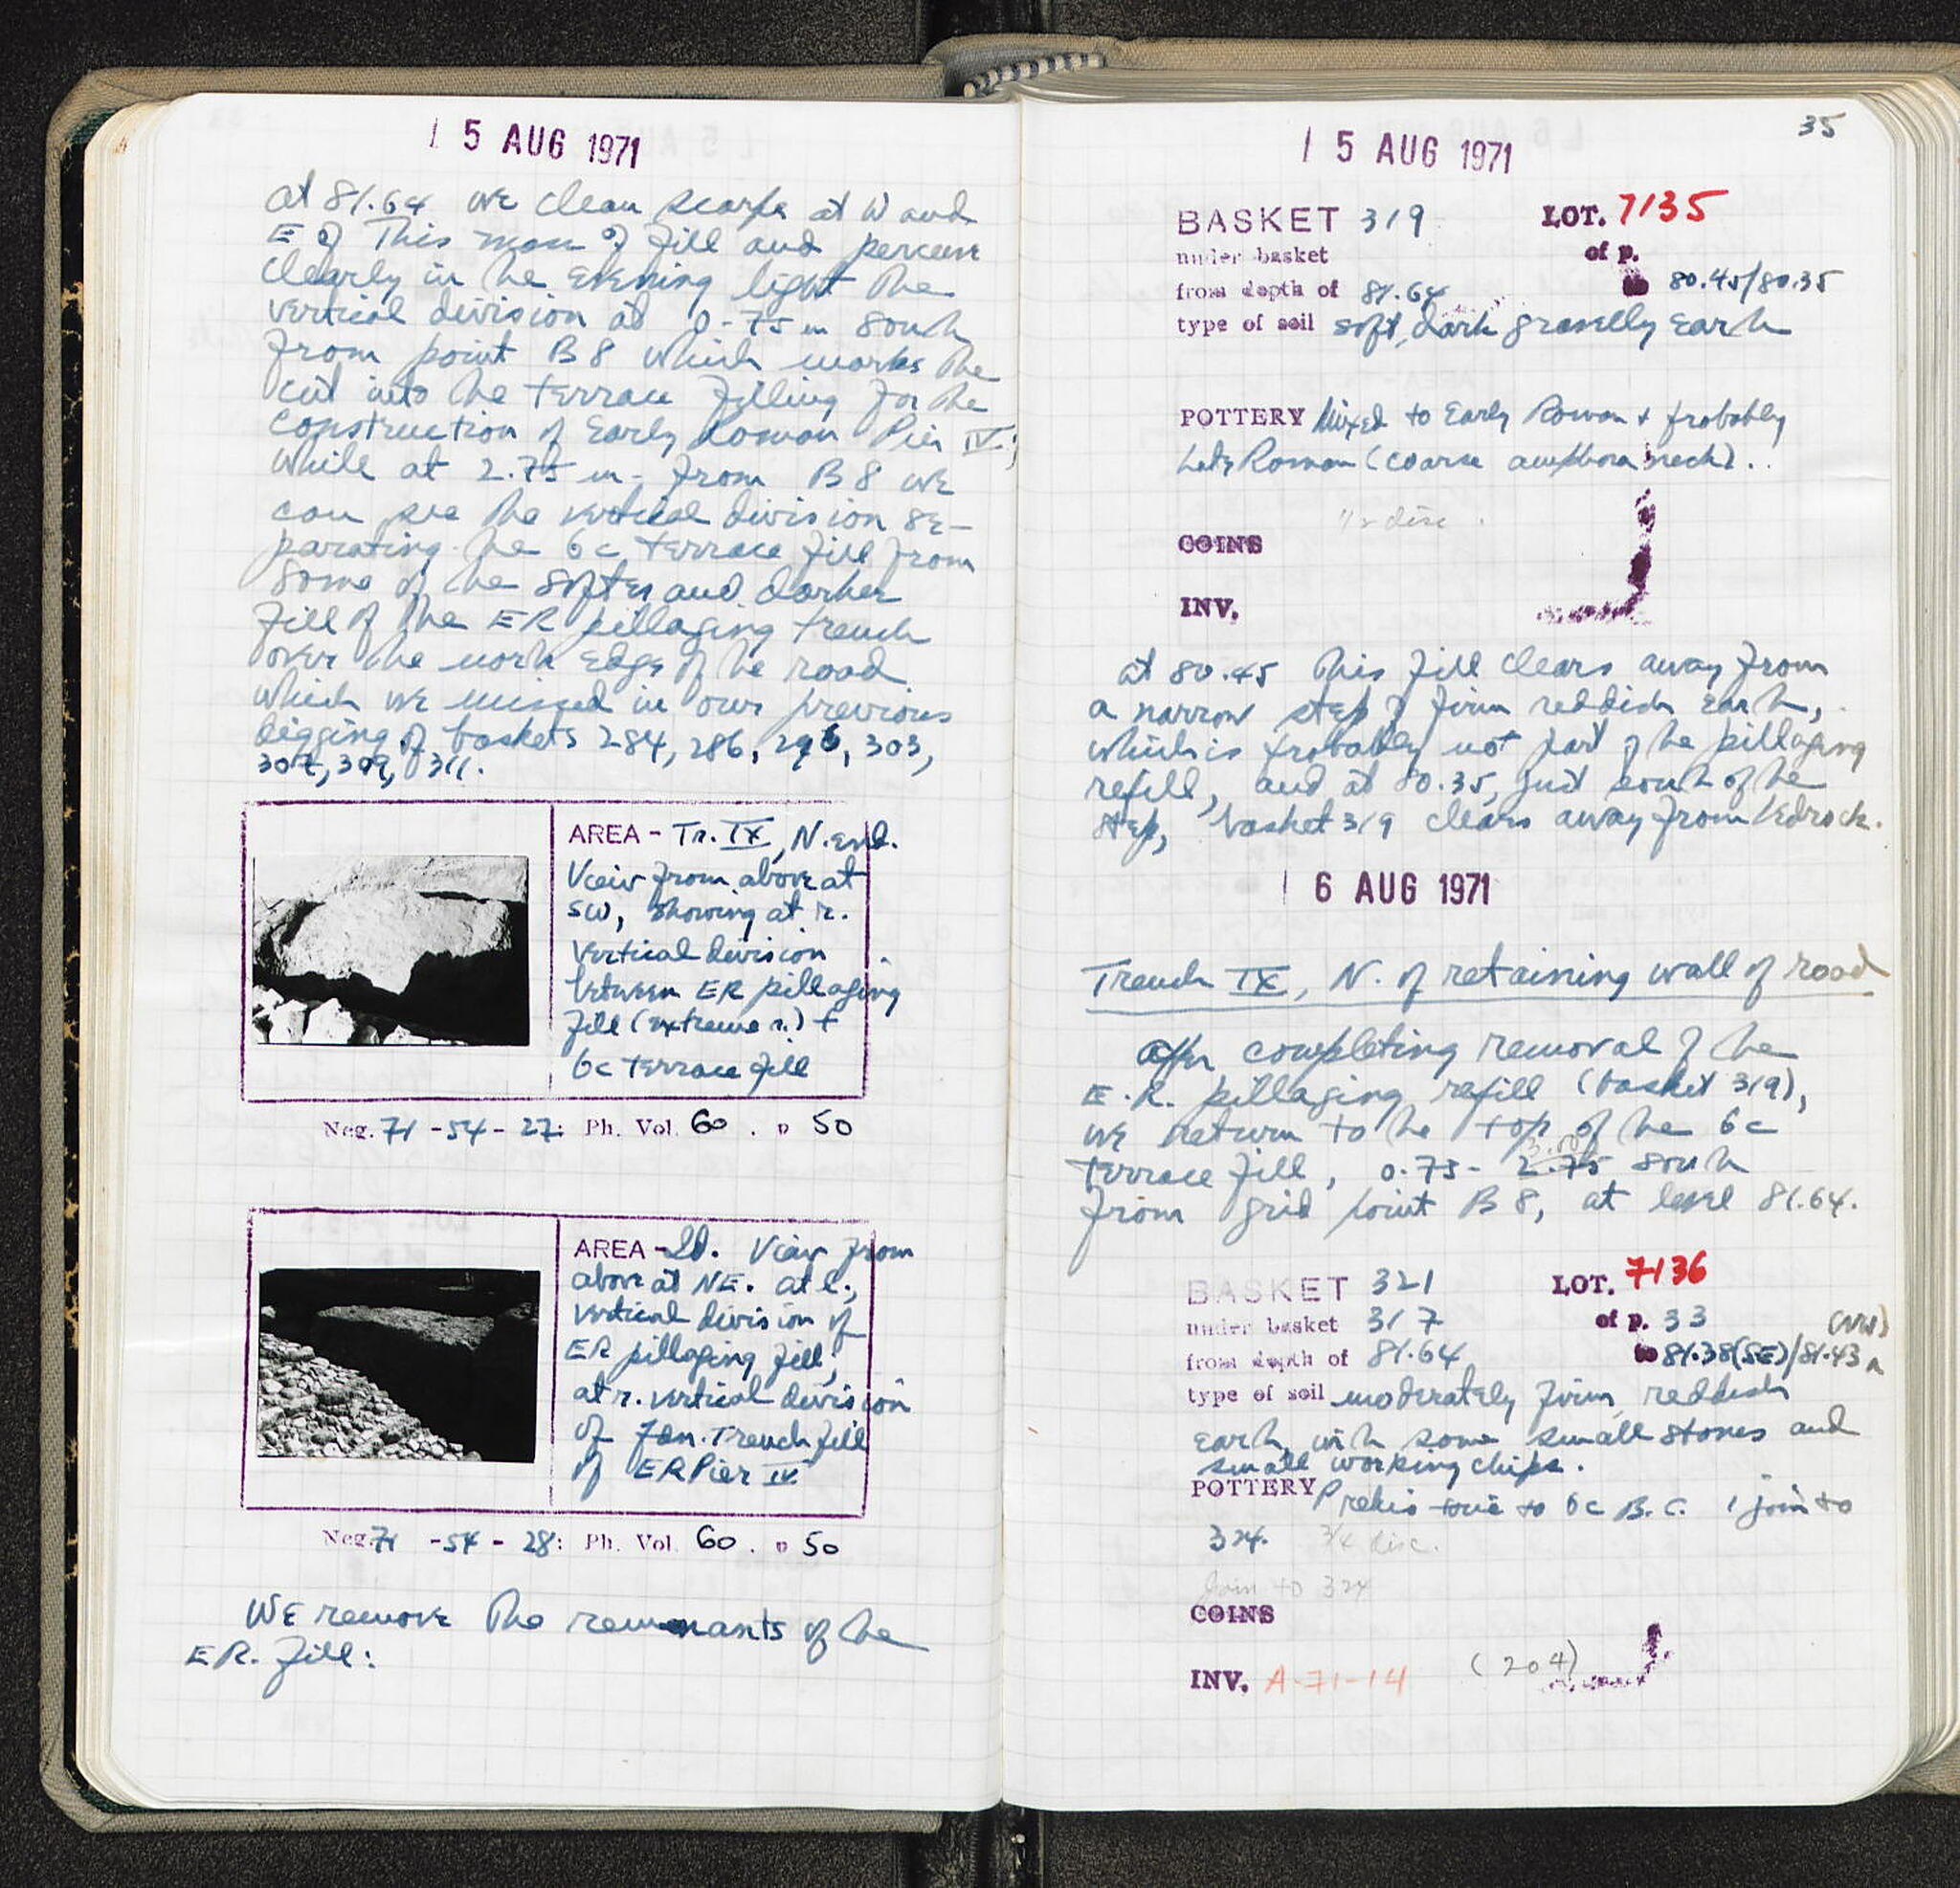 1 5 AUG 1971
at 81.64 we clean scarps at W and
E of This mass of fill and perceive
clearly in the evening light the
vertical division at 0.75 m south
from point B8 which marks the
cut into the terrace filling for the
construction of Early Roman Pier IV;
while at 2.75 m. from B8 we
can see the vertical division se-
parating the 6c terrace fill from
some of the softer and darker
fill of the ER pillaging trench
over the north edge of the road
which we missed in our previous
digging of baskets 284, 286, 296, 303,
307, 309, 311.
AREA - Tr. IX, N. end.
View from above at
SW, showing at r.
vertical division
between ER pillaging
fill (extreme r.) +
6c terrace fill
Neg. 71 - 54 - 27: Ph. Vol. 60. p 50
AREA - Id. View from
above at NE. At l.,
vertical division of
ER pillaging fill;
at r. vertical division
of Fdn. Trench fill
of ER Pier IV
Neg. 71 - 54 - 28: Ph. Vol. 60. p 50
We remove the remnants of the
ER. fill:
35
1 5 AUG 1971
BASKET 319 LOT. 7135
under basket of p.
from depth of 81.64 to 80.45/80.35
type of soil soft, dark gravelly earth
POTTERY Mixed to Early Roman + probably
Late Roman (coarse amphora neck)..
1/2 disc.
COINS
INV.
at 80.45 this fill clears away from
a narrow step of firm reddish earth,
which is probably not part of the pillaging
refill, and at 80.35, just south of the
step, basket 319 clears away from bedrock.
1 6 AUG 1971
Trench IX, N. of retaining wall of road
After completing removal of the
E.R. pillaging refill (basket 319),
we return to the top of the 6c
3.00
terrace fill, 0.75 - 2.75 south
from grid point B8, at level 81.64.
BASKET 321 LOT. 7136
under basket 317 of p. 33 (NW)
from depth of 81.64 to 81.38(SE)/81.43
type of soil moderately firm, reddish
earth, with some small stones and
small working chips.
POTTERY Prehistoric to 6c B.C. 1 join to
324. 3/4 disc.
Join to 324
COINS
INV. A-71-14 (204)